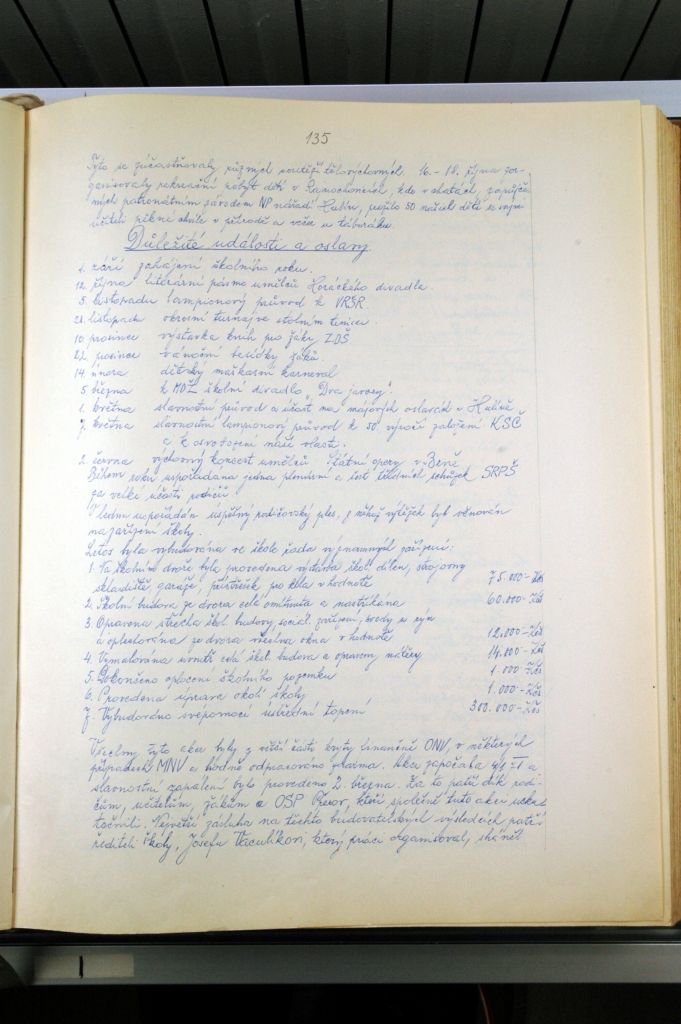 135
Tyto se zúčastňovaly různých soutěží tělovýchovných. 16. - 18. října zor-
ganisovaly rekreační pobyt dětí v Ramochonech, kde v chatách, zapůjče-
ných patronátním závodem NP nářadí Hulín, prožilo 50 našich dětí se svými
učiteli pěkné chvíle v přírodě a večer u táboráku.
Důležité události a oslavy.
1. září zahájení školního roku.
12. října literární pásmo umělců Horáckého divadla.
5. listopadu lampionový průvod k VŘSR.
21. listopadu okresní turnaj ve stolním tenise.
10. prosince výstavka knih pro žáky ZDŠ
22. prosince vánoční besídky žáků.
14. února dětský maškarní karneval
5. března k MDŽ školní divadlo "Dva javory".
1. května slavnostní průvod a účast na májových oslavách v Hulíně
7. května slavnostní lampionový průvod k 50. výročí založení KSČ
a k osvobození naší vlasti.
2. června výchovný koncert umělců Státní opery v Brně
Během roku uspořádána jedna plenární a šest třídních schůzek SRPŠ
za velké účasti rodičů.
V lednu uspořádán úspěšný rodičovský ples, z něhož výtěžek byl věnován
na zařízení školy.
Letos byla vybudována ve škole řada významných zařízení:
1. Na školním dvoře byla provedena výstavba škol. dílen, strojovny
skladiště, garáže, přístřešek pro kola v hodnotě 75.000 - Kčs
2. Školní budova ze dvora celá omítnuta a nastříkána 60.000 - Kčs
3. Opravena střecha škol. budovy, sociál. zařízení, svody u rýn
a oplechována ze dvora všechna okna v hodnotě 12.000 - Kčs
4. Vymalována uvnitř celá škol. budova a opraveny nátěry 14.000 - Kčs
5. Dokončeno oplocení školního pozemku 1.000 - Kčs
6. Provedena úprava okolí školy 1.000 - Kčs
7. Vybudováno svépomocí ústřední topení 300.000 - Kčs
Všechny tyto akce byly z větší části kryty finančně ONV, v některých
případech MNV a hodně odpracováno zdarma. Akce započala a
slavnostní zapálení bylo provedeno 2. března. Za to patří dík rodi-
čům, učitelům, žákům a OSP Přerov, kteří společně tuto akci usku-
tečnili. Největší zásluha na těchto budovatelských výsledcích patří
řediteli školy, Josefu Vaculíkovi, který práci organisoval, sháněl